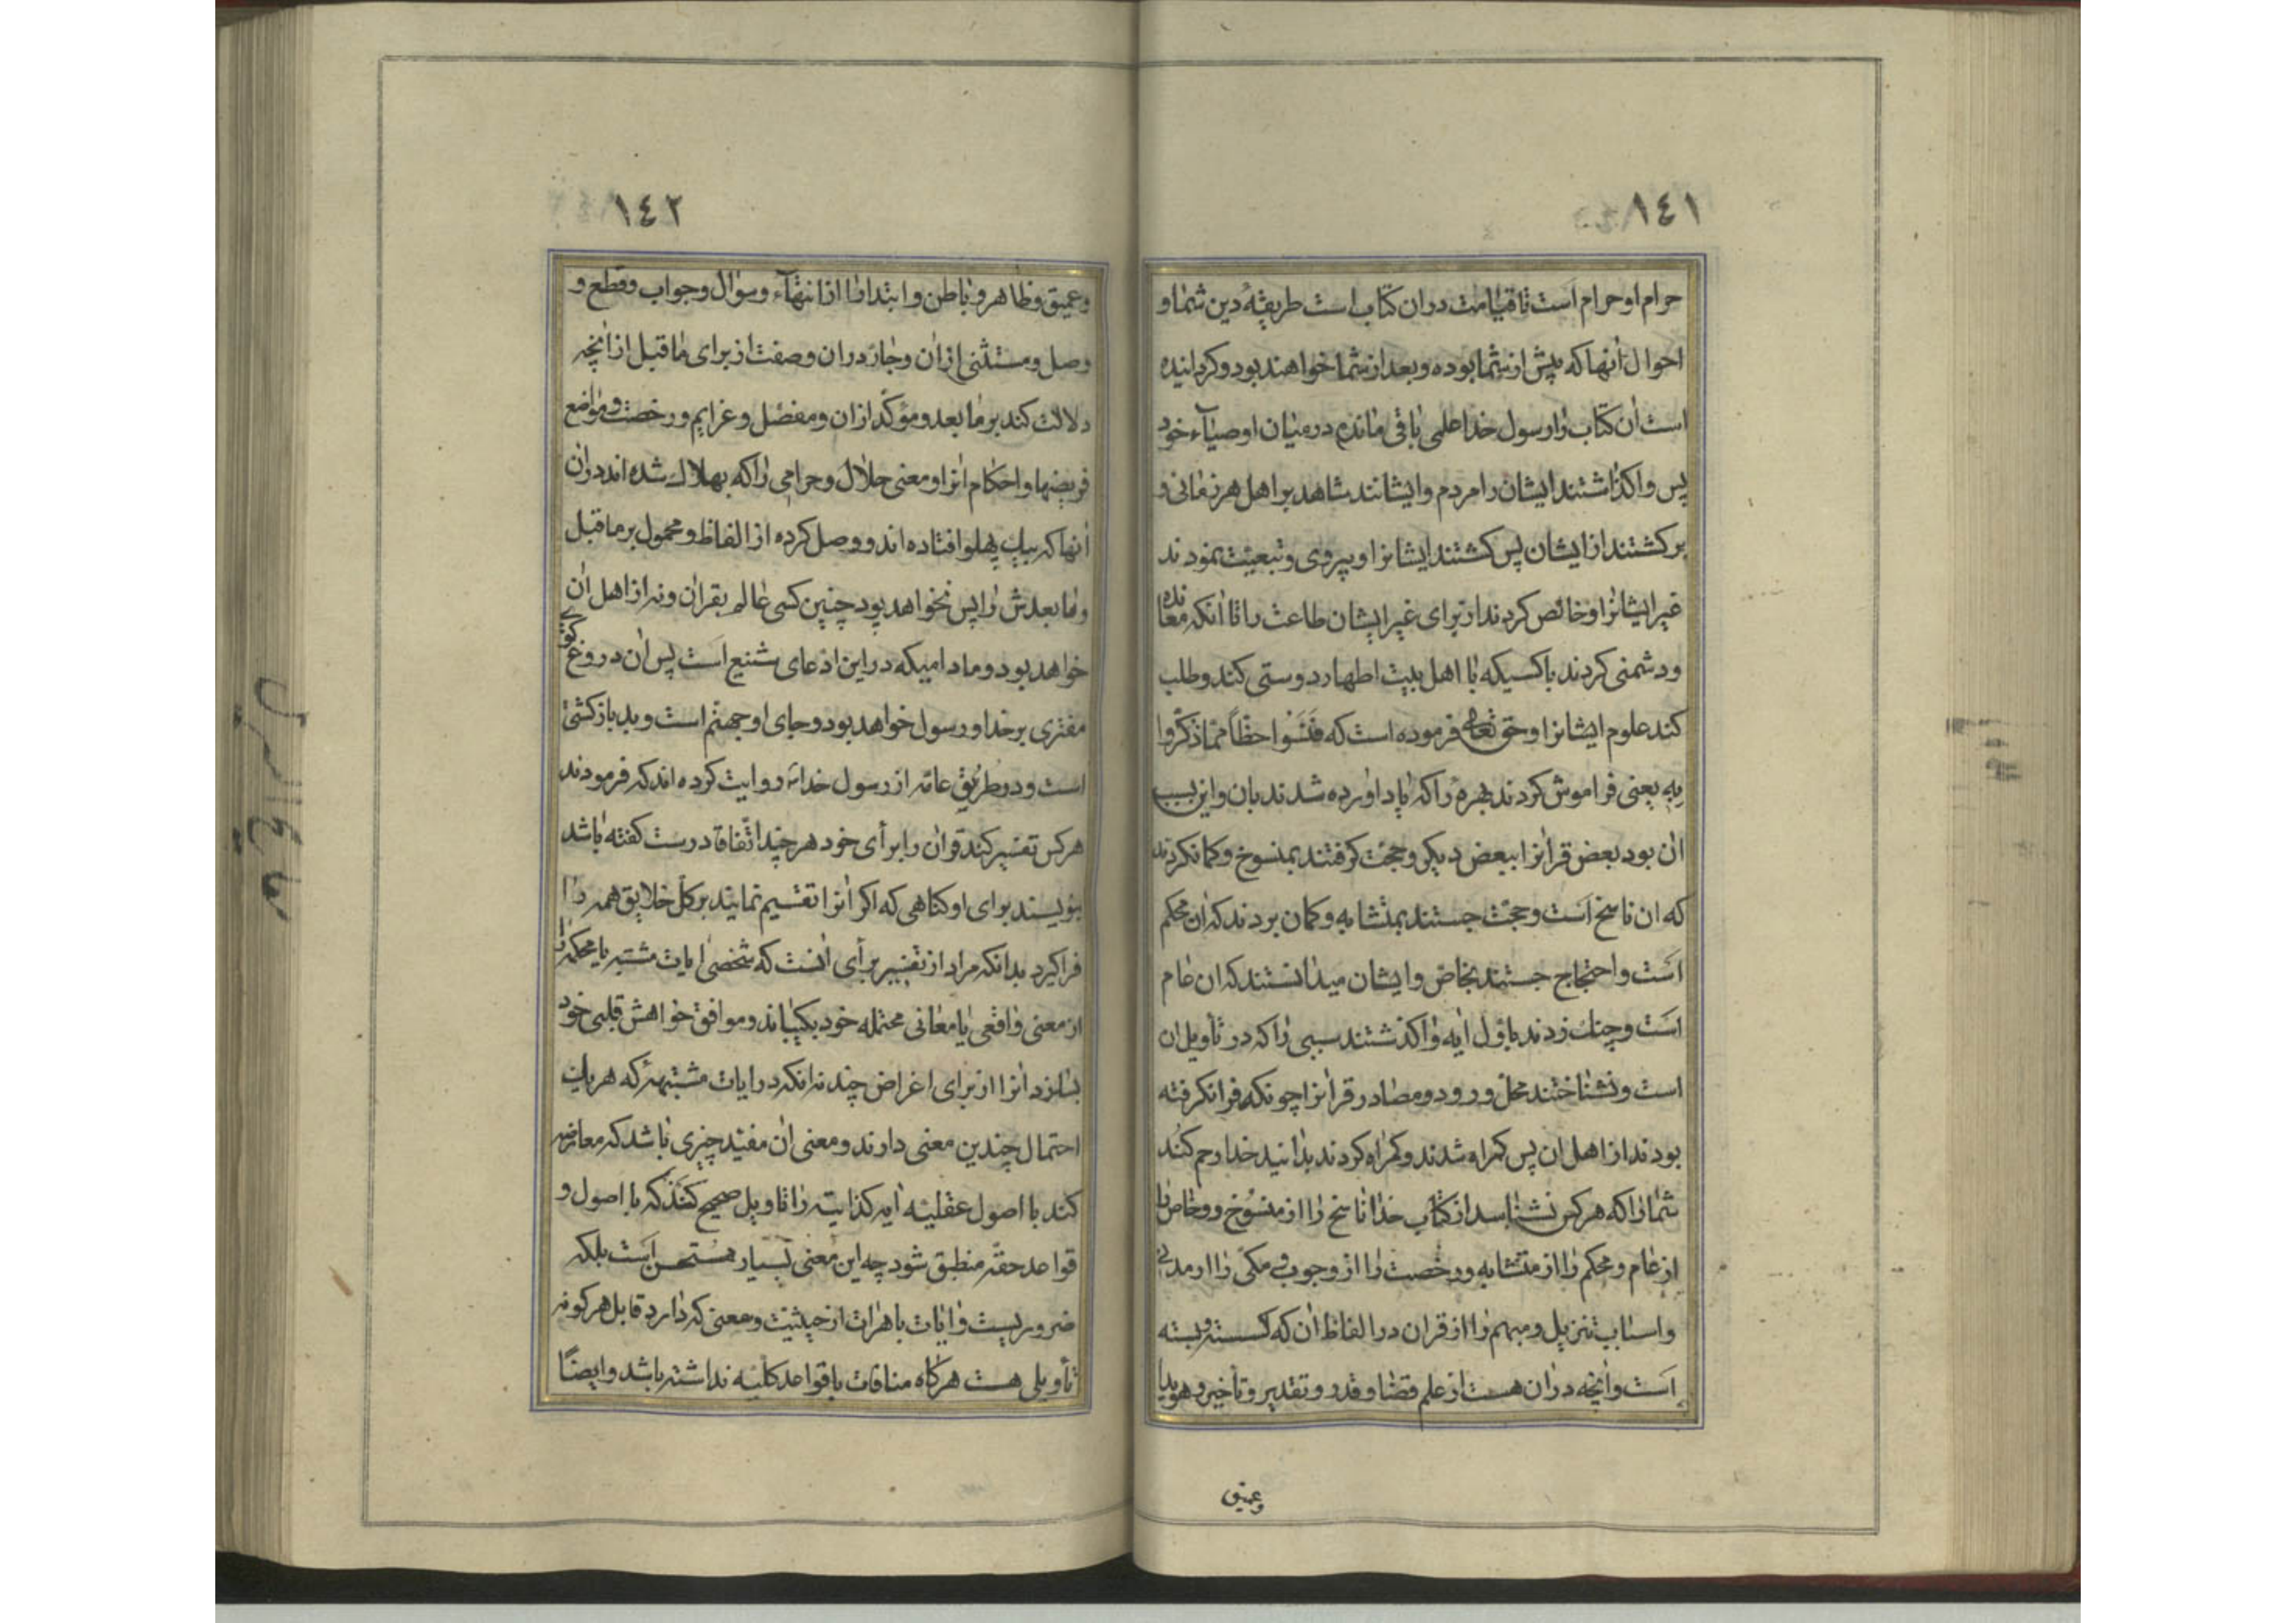 ١٤١
حرام او حرام است تا قیامت در ان کتاب است طریقهٔ دین شما و
احوال انها که پیش از شما بوده و بعد از شما خواهند بود و کردانیده
است ان کتاب را رسول خدا علمی باقی مانده در میان اوصیآء خود
پس واکذاشتند ایشان را مردم و ایشانند شاهد بر اهل هر زمانی و
برکشتند از ایشان پس کشتند ایشانرا و پیروی و تبعیت نمودند
غیر ایشانرا و خالص کردند از برای غیر ایشان طاعت را تا انکه معانده
و دشمنی کردند با کسیکه با اهل بیت اظهار دوستی کند و طلب
کند علوم ایشانرا و حق تعالی فرموده است که فَنَسُوا حظّاً ممّا ذکّروا
بِهِ یعنی فراموش کردند بهرهٔ را که یاد اورده شدند بان و این بسبب
ان بود بعض قرانرا ببعض دیکر و حجّت کرفتند بمنسوخ و کمانکردند
که ان ناسخ است و حجّت جستند بمتشابه و کمان بردند که ان محکم
است و احتجاج جستند بخاصّ و ایشان میدانستند که ان عام
است و چنك زدند باول ایه و اکذشتند سببی را که در تأویل ان
است و نشناختند محلّ ورود و مصادر قرانرا چونکه فرانکرفته
بودند از اهل ان پس کمراه شدند و کمراه کردند بدانید خدا رحم کُند
شما را که هرکس نشناسد از کتاب خدا ناسخ را از منسُوخ و وخاص را
از عام و محکم را از متشابه و رخصت را از وجوب و مکّی را از مدنی
و اسباب تنزیل و مبهم را از قران در الفاظ ان که کسسته و بسته
است و انچه در ان هست از علم قضا و قدر و تقدیر و تأخیر و هویدا
وعمیق
١٤٢
و عمیق و ظاهر و باطن و ابتدا را از انتهآء و سؤال و جواب و قطع و
وصل و مستثنی از ان و جار در ان و صفت از برای ما قبل از انچه
دلالت کند بر ما بعد و مؤکّد از ان و مفصّل و عزایم و رخصت و مواضع
فریضها و احکام انرا و معنی حلال و حرامی را که بهلاك شده اند در ان
انها که بیك پهلو افتاده اند و وصل کرده از الفاظ و محمول بر ما قبل
و ما بعدش را پس نخواهد بود چنین کسی عالم بقران و نه از اهل ان
خواهد بود و مادامیکه در این ادّعای شنیع است پس ان دروغ کوی
مفتری بر خدا و رسول خواهد بود و جای او جهنّم است و بد بازکشتی
است و در طریق عامّه از رسول خدا روایت کرده اند که فرمودند
هرکس تفسیر کند قران را برأی خود هرچند اتّفاقا درست کفته باشد
بنویسند برای او کناهی که اکر انرا تقسیم نمایند بر کلّ خلایق همه را
فراکیرد بدانکه مراد از تفسیر برأی انست که شخص ایات مشتبه یا محکمه را
از معنی واقعی یا معانی محتمله خود بکیباند و موافق خواهش قلبی خود
بسازد انرا از برای اغراض چند نه انکه در ایات مشتبهه که هر یك
احتمال چندین معنی دارند و معنی ان مفید چیزی باشد که معارضه
کند با اصول عقلیّه ایه کذاییّه را تاویل صحیح کنَند که با اصول و
قواعد حقّه منطبق شود چه این معنی بسیار مُستحسن است بلکه
ضروریست و ایات باهرات از حیثیّت و معنی که دارد قابل هر کونه
تأویلی هست هرکاه منافات با قواعد کلیّه نداشته باشد و ایضًا